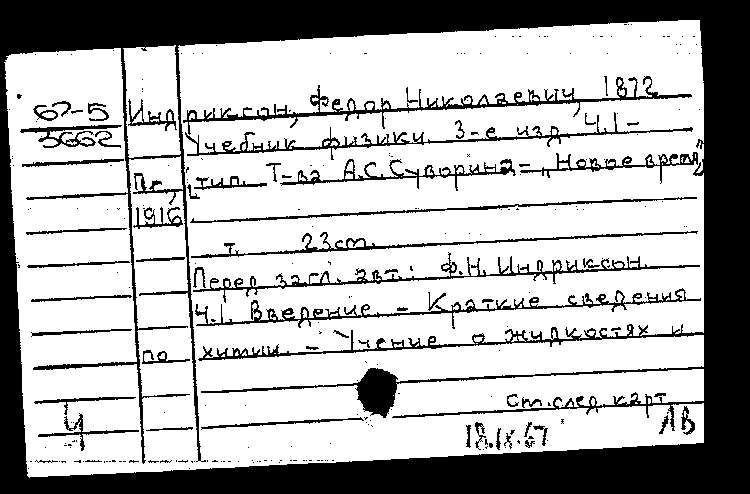 67-5
3662
Индриксон, Федор Николаевич, 1872
Учебник физики. 3-е изд. Ч.1-
Пг., [тип. Т-ва А.С.Суворина="Новое время",
1916
т. 23см.
Перед загл. авт.: Ф.Н. Индриксон.
Ч.1. Введение. - Краткие сведения
по химии. - Учение о жидкостях и
См. след. карт.
Ч
18.IX.67
ЛВ